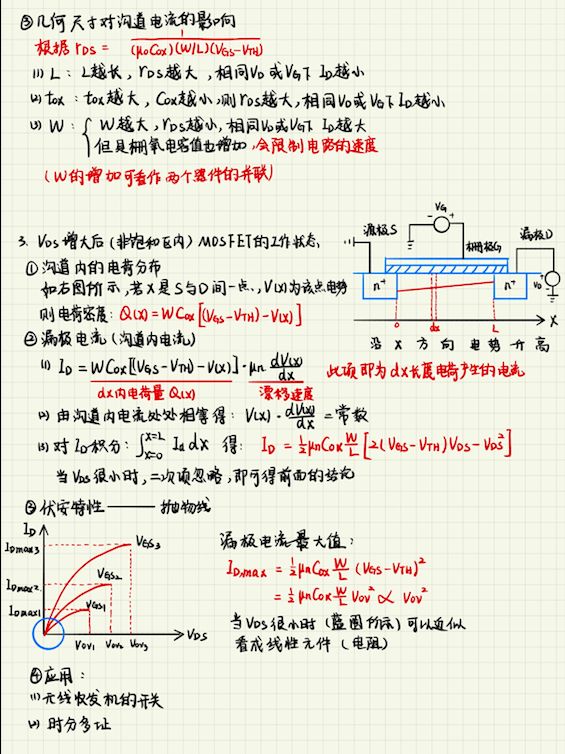 ③几何尺寸对沟道电流的影响
根据 rDS = 1/(μnCox)(W/L)(VGS-VTH)
(1) L：L越长，rDS越大，相同VD或VG下 ID越小
(2) tox：tox越大，Cox越小，则rDS越大，相同VD或VG下ID越小
(3) W：{ W越大，rDS越小，相同VD或VG下 ID越大
但是栅氧电容值也增加，会限制电路的速度
(W的增加可看作两个器件的并联)
3. VDS增大后(非饱和区内)MOSFET的工作状态、
①沟道内的电荷分布
如右图所示，若X是S与D间一点、，V(x)为该点电势
则电荷密度：Q(x)=WCox[(VGS-VTH)-V(x)]
VG
- +
源极S
栅极G
漏极D
n+
n+
VD
0
dx
L
X
沿 X 方 向 电 势 升 高
②漏极电流(沟道内电流)
(1) ID = WCox[(VGS-VTH)-V(x)]·μn dV(x)/dx
dx内电荷量Q(x) 漂移速度
此项即为dx长度电荷产生的电流
(2) 由沟道内电流处处相等得：V(x)·dV(x)/dx = 常数
(3) 对ID积分：∫x=0 x=L Id dx 得：ID = ½μnCox W/L [2(VGS-VTH)VDS-VDS²]
当VDS很小时，二次项忽略，即可得前面的结论
③伏安特性 —— 抛物线
ID
IDmax3
IDmax2
IDmax1
VGS3
VGS2
VGS1
VOV1 VOV2 VOV3
VDS
漏极电流最大值：
ID,max = ½μnCox W/L (VGS-VTH)²
= ½μnCox W/L VOV² ∝ VOV²
当VDS很小时(蓝圈所示)可以近似
看成线性元件(电阻)
④应用：
(1)无线收发机的开关
(2) 时分多址